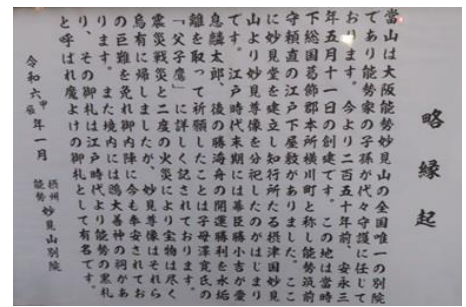 略縁起
當山は大阪能勢妙見山の全国唯一の別院
であり能勢家の子孫が代々守護に任じて
おります。今より二百五十年前、安永三
年五月十一日の創建です。この地は當時
下総国葛飾郡本所横川町と称し能勢筑前
守頼直の江戸下屋敷がありました。ここ
に妙見堂を建立し知行所たる摂津国妙見
山より妙見尊像を分祀したのがはじまり
です。江戸時代末期には幕臣勝小吉が愛
息麟太郎、後の勝海舟の開運勝利を水垢
離を取って祈願したことは子母澤寛氏の
「父子鷹」に詳しく記されております。
震災戦災と二度の火災により宝物は尽く
烏有に帰しましたが、妙見尊像はそれら
の巨難を免れ御内陣に今も奉安されてお
ります。また境内には鴎大善神の祠があ
り、その御札は江戸時代より能勢の黒札
と呼ばれ魔よけの御札として有名です。
令和六甲辰年一月
摂州能勢妙見山別院